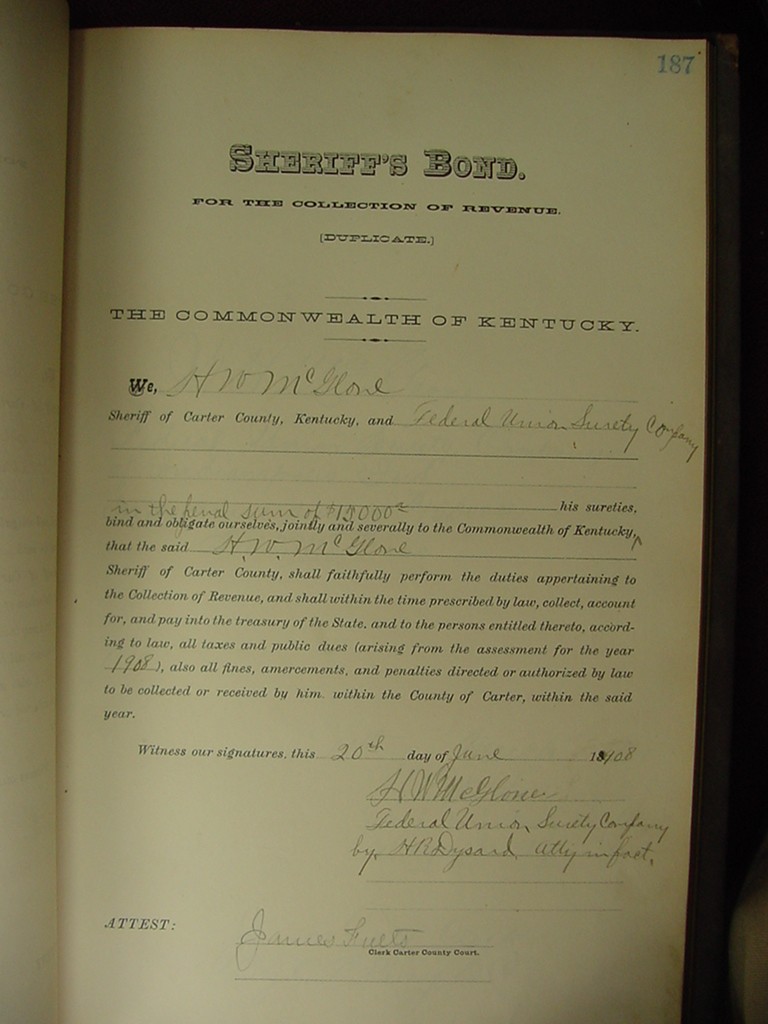 187
SHERIFF'S BOND.
FOR THE COLLECTION OF REVENUE.
[DUPLICATE.]
THE COMMONWEALTH OF KENTUCKY.
We, H W McGlone
Sheriff of Carter County, Kentucky, and Federal Union Surety Company
in the penal sum of $15000 his sureties,
bind and obligate ourselves, jointly and severally to the Commonwealth of Kentucky,
that the said H. W. McGlone
Sheriff of Carter County, shall faithfully perform the duties appertaining to
the Collection of Revenue, and shall within the time prescribed by law, collect, account
for, and pay into the treasury of the State. and to the persons entitled thereto, accord-
ing to law, all taxes and public dues (arising from the assessment for the year
1908), also all fines, amercements, and penalties directed or authorized by law
to be collected or received by him within the County of Carter, within the said
year.
Witness our signatures, this 20th day of June 1908
H W McGlone
Federal Union Surety Company
by H R Dysard Atty in fact.
ATTEST:
James Fults
Clerk Carter County Court.